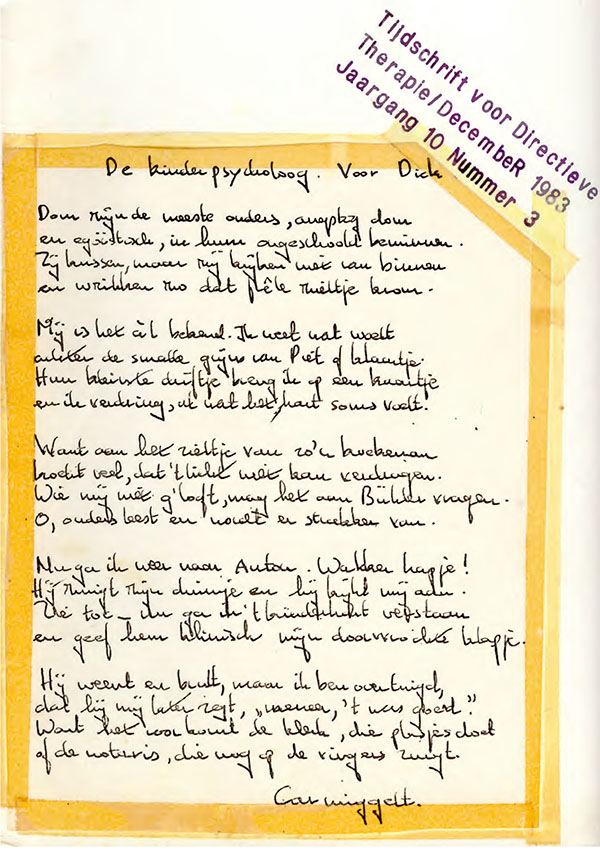 Tijdschrift voor Directieve
Therapie/DecembeR 1983
Jaargang 10 Nummer 3
De kinderpsycholoog. Voor Dick
Dom zijn de meeste ouders, dom
en egoïstisch, in hun ongeschoold beminnen.
Zij kussen, maar zij kijken niet van binnen
en wrikken zo dat frêle zieltje krom.
Mij is het àl bekend. Ik weet wat woelt
achter de smalle grijns van Piet of Klaartje.
Hun kleinste driftje breng ik op een kaartje
en ik verdring, wat het hart soms voelt.
Want aan het zieltje van zo'n broekeman
broeit veel, dat 't licht niet kan verdragen.
Wie mij niet g'looft, mag het aan Bühler vragen.
O, ouders leest en wordt er strakker van.
Nu ga ik weer naar Anton. Wakker hapje!
Hij zuigt zijn duimpje en hij kijkt mij aan.
'k ga in 't verstaan
en geef hem klinisch mijn doorwrochte klapje.
Hij weent en brult, maar ik ben overtuigd,
dat hij mij later zegt, „meneer, 't was goed!"
Want het voorkomt de klerk, die plasjes doet
of de notaris, die nog op de vingers zuigt.
Carmiggelt.